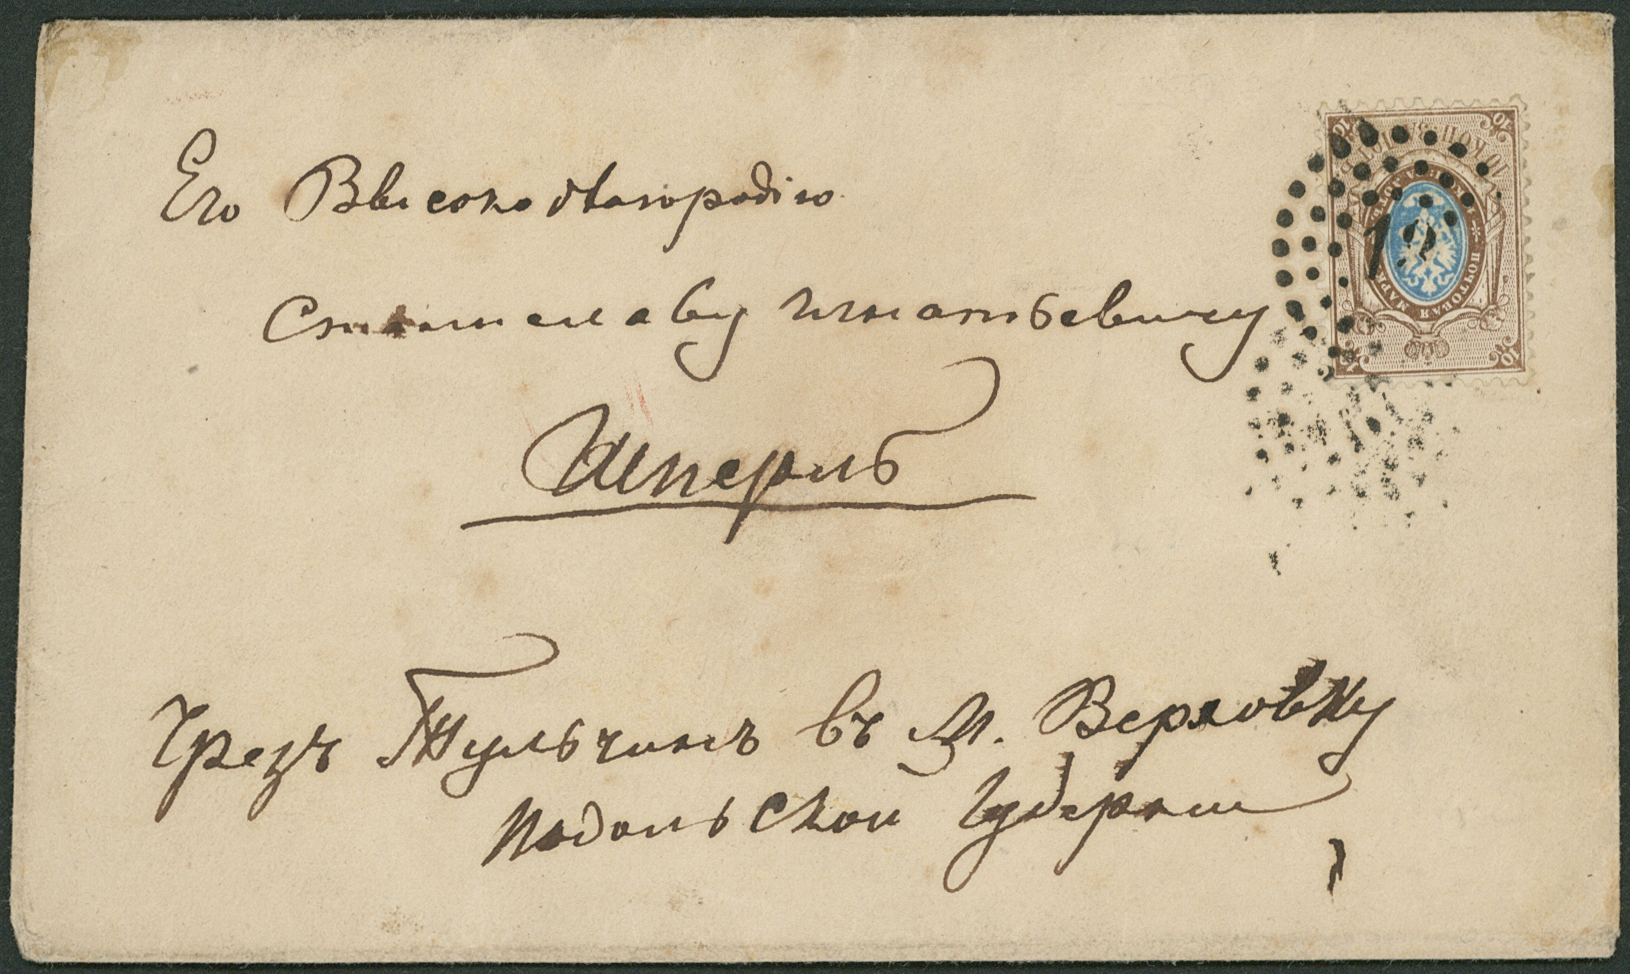 Его Высокоблагородію
Станиславу Игнатьевичу
Шперль
Чрезъ Тульчинъ въ м. Верховку
Подольской Губерніи
10 КОП.
ПОЧТОВАЯ МАРКА
12